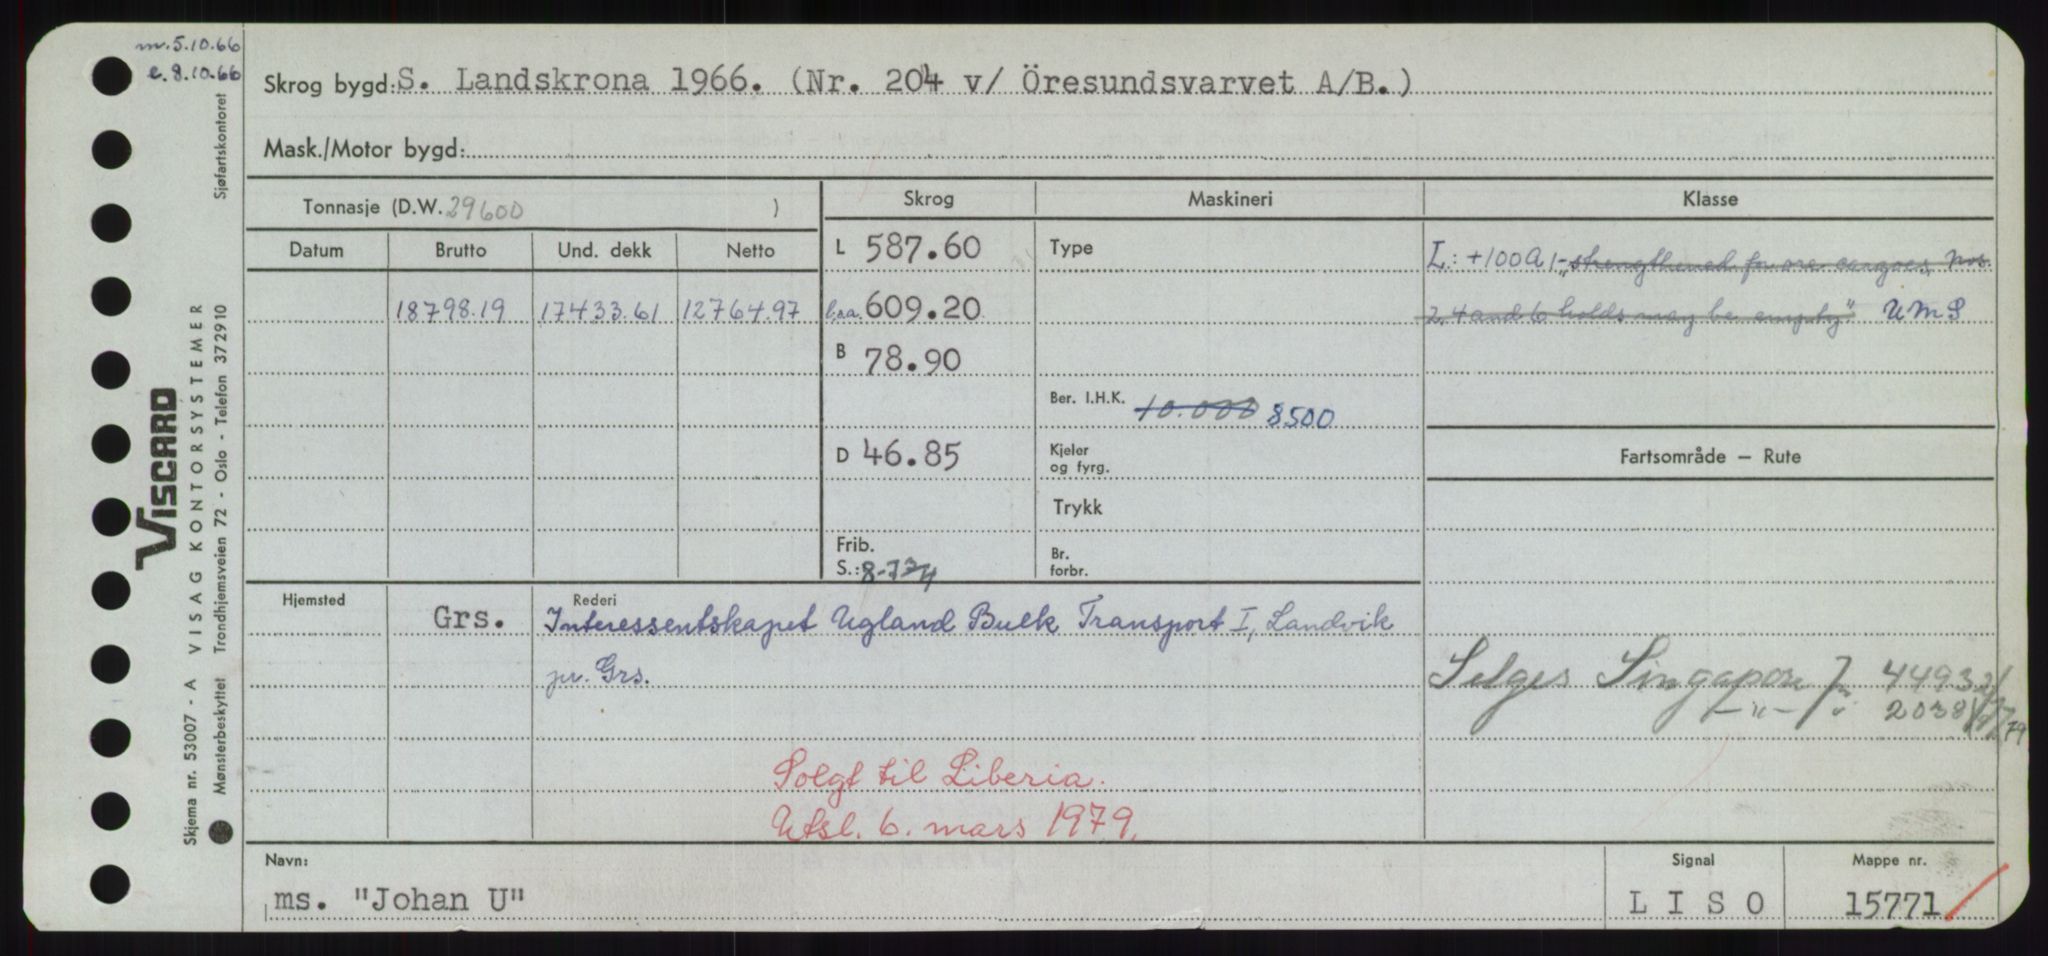 m. 5.10.66
e. 8.10.66
Skrog bygd: S. Landskrona 1966. (Nr. 204 v/ Öresundsvarvet A/B.)
Mask./Motor bygd:
Tonnasje (D.W. 29600 )
Skrog Maskineri Klasse
Datum Brutto Und. dekk Netto
L 587.60 Type L: +100A1 - "strengthened for ore cargoes, Nos.
18798.19 17433.61 12764.97 l.r.a. 609.20 2, 4 and 6 holds may be empty". UMS
B 78.90
Ber. I.H.K. 10.000 8500
D 46.85 Kjeler og fyrg. Fartsområde – Rute
Trykk
Frib.
S.: 8-7 Br. forbr.
Hjemsted Rederi
Grs. Interessentskapet Ugland Bulk Transport I, Landvik
pr. Grs.
Selges Singapore 4493
— " — 2038 79
Solgt til Liberia.
Utsl. 6. mars 1979.
Navn: Signal Mappe nr.
ms. "Johan U" L I S O 15771
VISCARD
Skjema nr. 53007 - A VISAG KONTORSYSTEMER
Mønsterbeskyttet Trondhjemsveien 72 - Oslo - Telefon 372910 Sjøfartskontoret